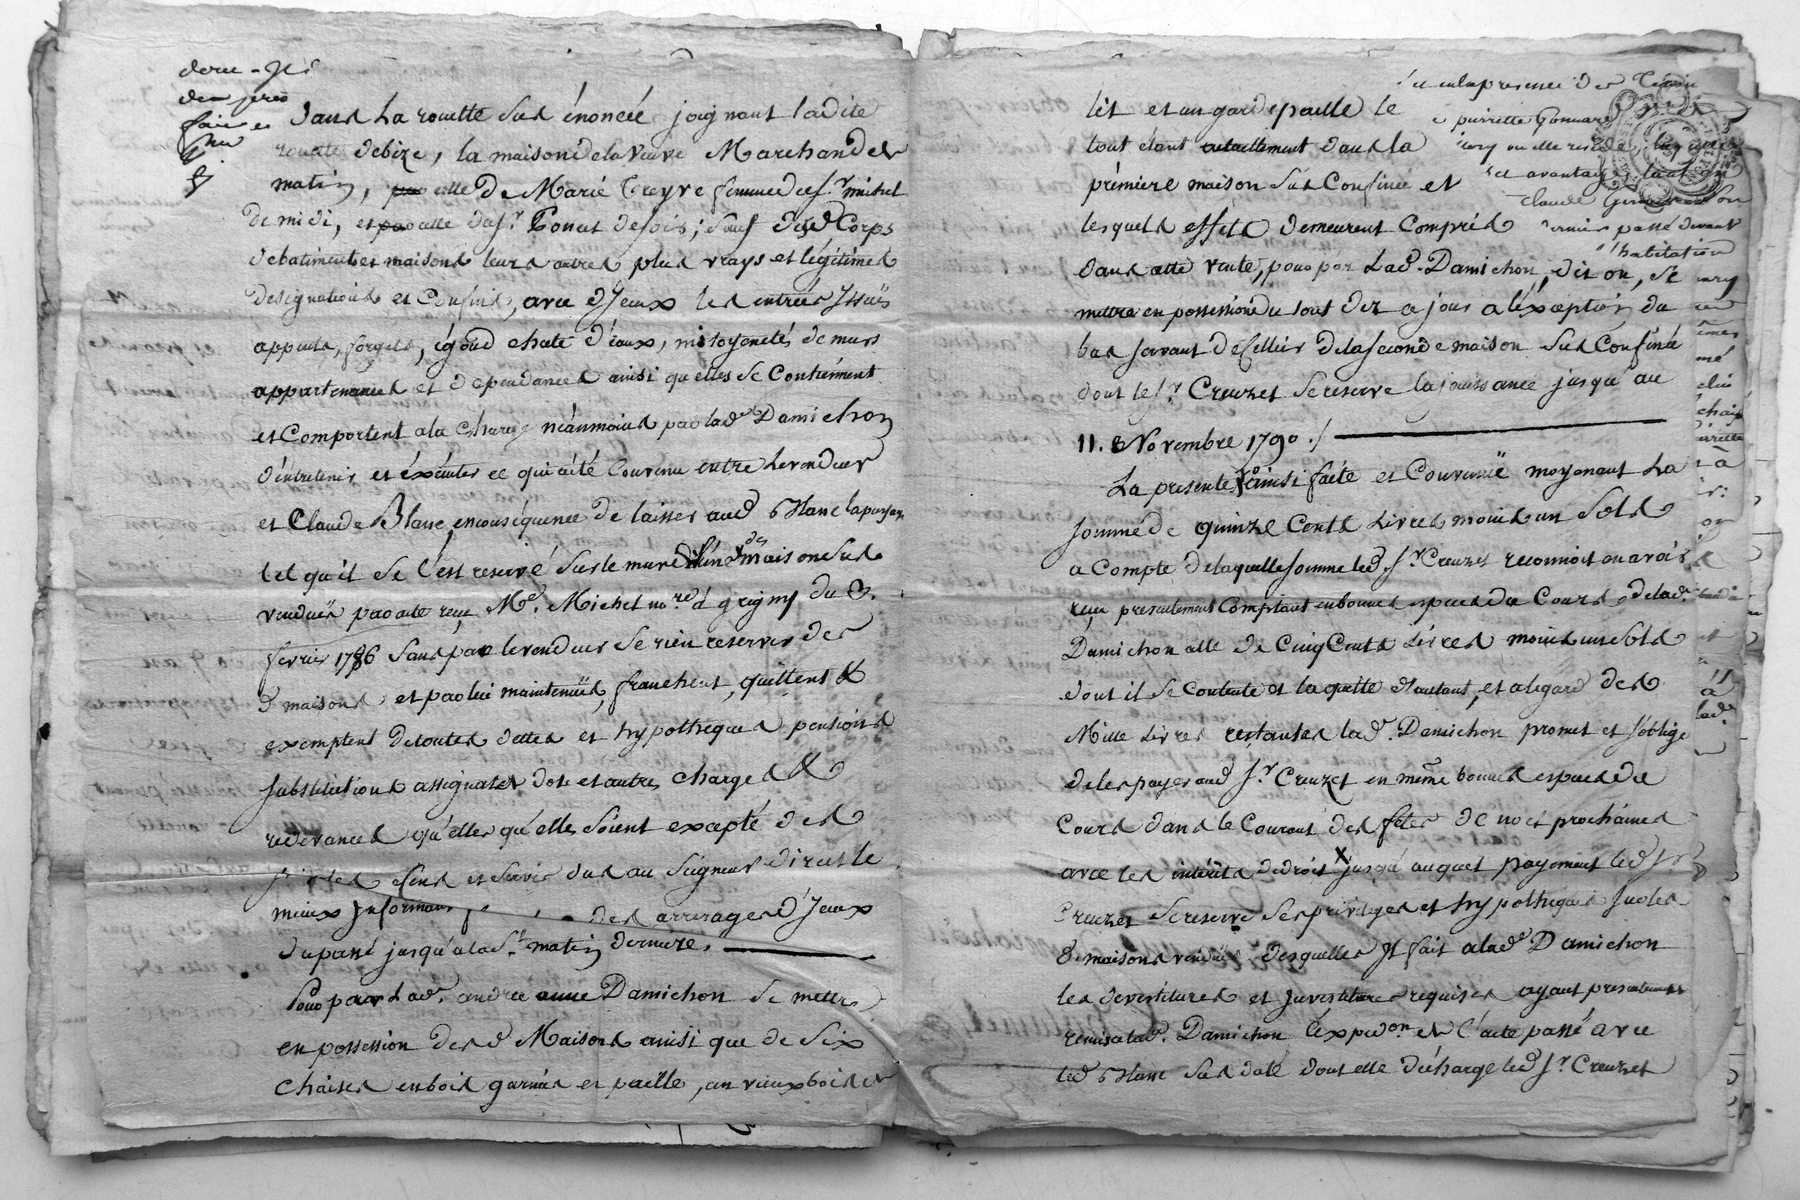 dans La rouette sus énoncée joignant ladite
rouette debize, la maison de la veuve Marchand de
matin, celle De Marie Treyve femme de sr. michel
de midi, et celle du sr. Ponnet de soir; sauf desd. Corps
de batiments et maisons leurs autres plus vrays et légitimes
designations et Confins, avec d'Jceux les entrées Jssuës
appents, forgets, égoud chute d'éaux, mitoyenetés de murs
appartenances et dependances ainsi qu'elles se Contiennent
et Comportent a la Charge néanmoins par lad. Damichon
d'entretenir et éxécuter ce qui a été Convenu entre le vendeur
et Claude Blanc, en conséquence de laisser aud. Blanc
tel qu'il se l'est reservé sur le mur maisons sus
venduës par acte reçu Me. Michel nore. a grigny du 8.
fevrier 1786 sans par le vendeur se rien reserver des
d. maisons et par lui maintenuës, franches, quittes &
exemptes de toutes dettes et hypotheques pensions
substitutions assignats dots et autres charges &
redevances qu'elles qu'elles soient excepté des
cens et servis dus au seigneur direct le
mieux Jnformant des arrerages d'Jceux
du passé jusqu'a la St. matin derniere.
Pour par Lad. andrée anne Damichon se mettre
en possession desd. Maisons ainsi que de six
chaises en bois garnies en paille, un vieux bois de
lit et un garde paille le
tout étant actuellement dans la
première maison sus Confinée et
lesquels effets demeurent Compris
dans cette vente, pour par Lad. Damichon, dit on, se
mettre en possession du tout dez ce jour a l'éxception du
bas servant de Cellier de la seconde maison sus Confinée
dont le sr. Creuzet se reserve la jouissance jusqu'au
11. Novembre 1790.
La presente ainsi faite et Convenuë moyenant La
somme de quinze Cents Livres moins un sols
a Compte de laquelle somme led. sr. Creuzet reconnoit en avoir
reçu presentement Comptant en bonnes especes de Cours de lad.
Damichon celle de Cinq Cents Livres moins un sols
dont il se Contente et la quitte d'autant, et a legard des
Mille Livres restantes lad. Damichon promet et s'oblige
de les payer aud. sr. Creuzet en même bonnes especes de
Cours dans le Courant des fetes de noel prochaines
avec les intérêts de droit jusqu'auquel payement led. sr.
Creuzet se reserve ses privileges et hypotheques sur les
d. maisons venduës desquelles Jl fait a lad. Damichon
les devestitures et Jnvestitures requises ayant presentement
remis a lad. Damichon l'éxpedon. de l'acte passé avec
led. Blanc sus daté dont elle décharge led. sr. Creuzet
en la presence de
pierrette Gonnard
ou elle reside
avantage
Claude
passé devant
habitation